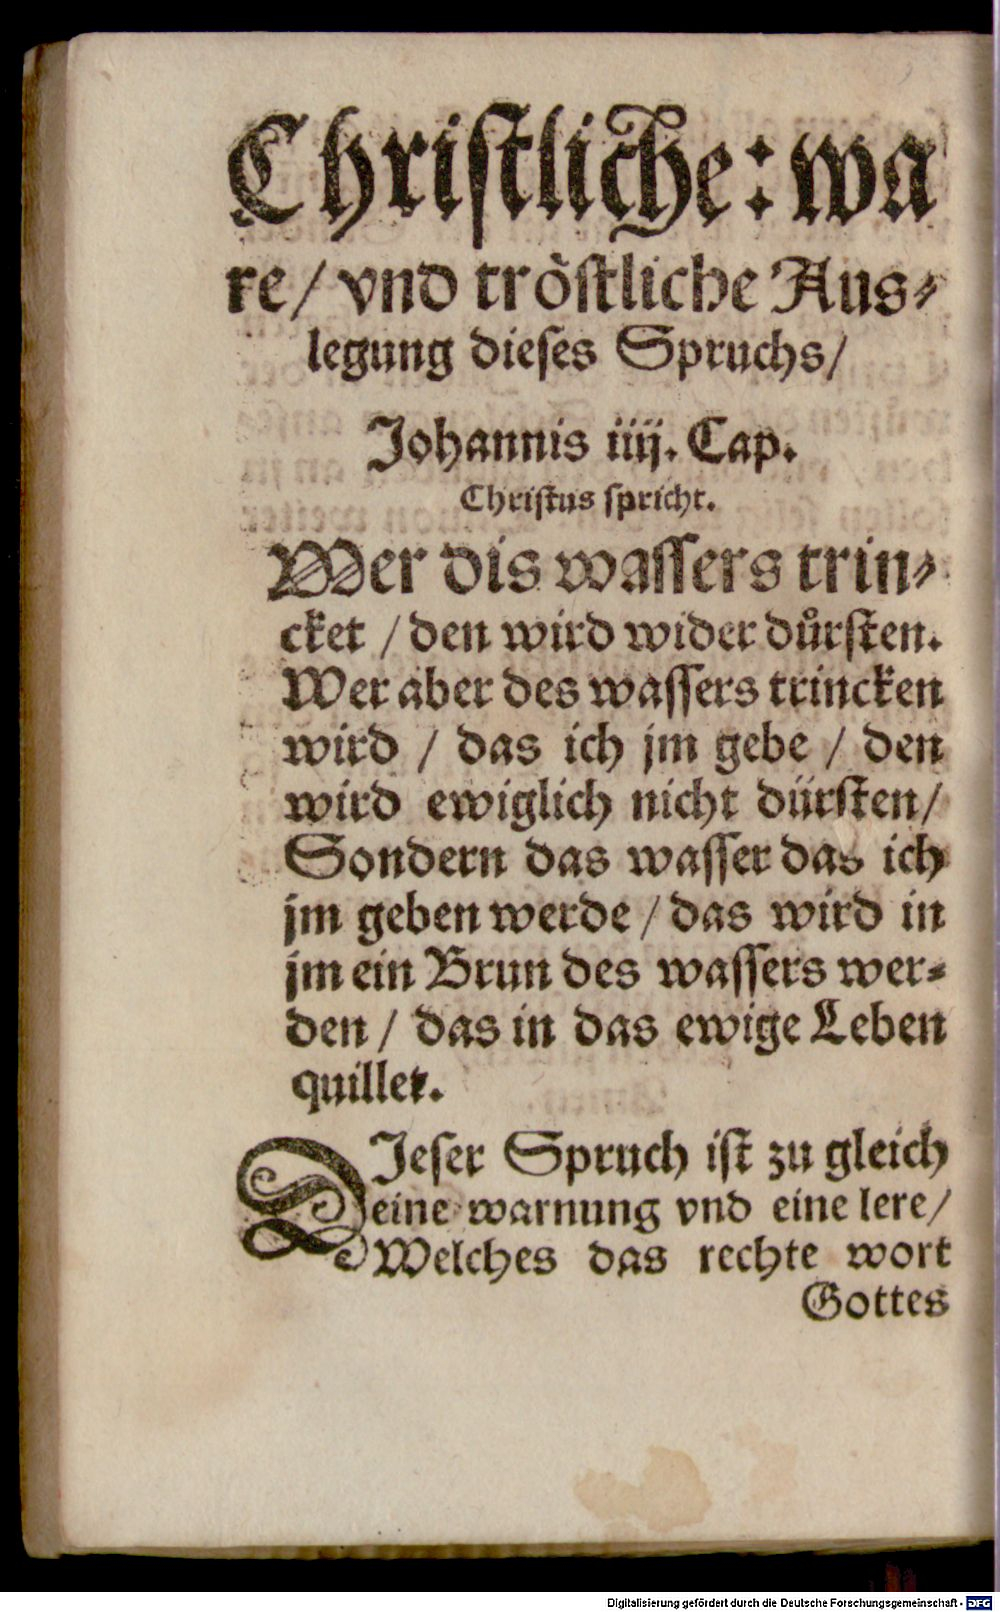 Christliche: wa
re/ vnd tröstliche Aus-
legung dieses Spruchs/
Johannis iiij. Cap.
Christus spricht.
Wer dis wassers trin-
cket / den wird wider důrsten.
Wer aber des wassers trincken
wird / das ich jm gebe / den
wird ewiglich nicht dürsten/
Sondern das wasser das ich
jm geben werde / das wird in
jm ein Brun des wassers wer-
den / das in das ewige Leben
quillet.
DJeser Spruch ist zu gleich
eine warnung vnd eine lere/
Welches das rechte wort
Gottes
Digitalisierung gefördert durch die Deutsche Forschungsgemeinschaft - DFG